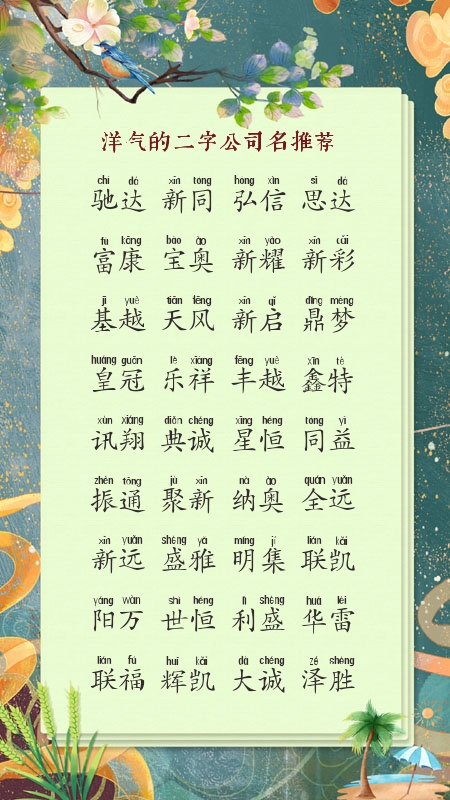 洋气的二字公司名推荐
chí dá xīn tóng hóng xìn sī dá
驰达 新同 弘信 思达
fù kāng bǎo ào xīn yào xīn cǎi
富康 宝奥 新耀 新彩
jī yuè tiān fēng xīn qǐ dǐng mèng
基越 天风 新启 鼎梦
huáng guān lè xiáng fēng yuè xīn tè
皇冠 乐祥 丰越 鑫特
xùn xiáng diǎn chéng xīng héng tóng yì
讯翔 典诚 星恒 同益
zhèn tōng jù xīn nà ào quán yuǎn
振通 聚新 纳奥 全远
xīn yuǎn shèng yǎ míng jí lián kǎi
新远 盛雅 明集 联凯
yáng wàn shì héng lì shèng huá léi
阳万 世恒 利盛 华雷
lián fú huī kǎi dà chéng zé shèng
联福 辉凯 大诚 泽胜